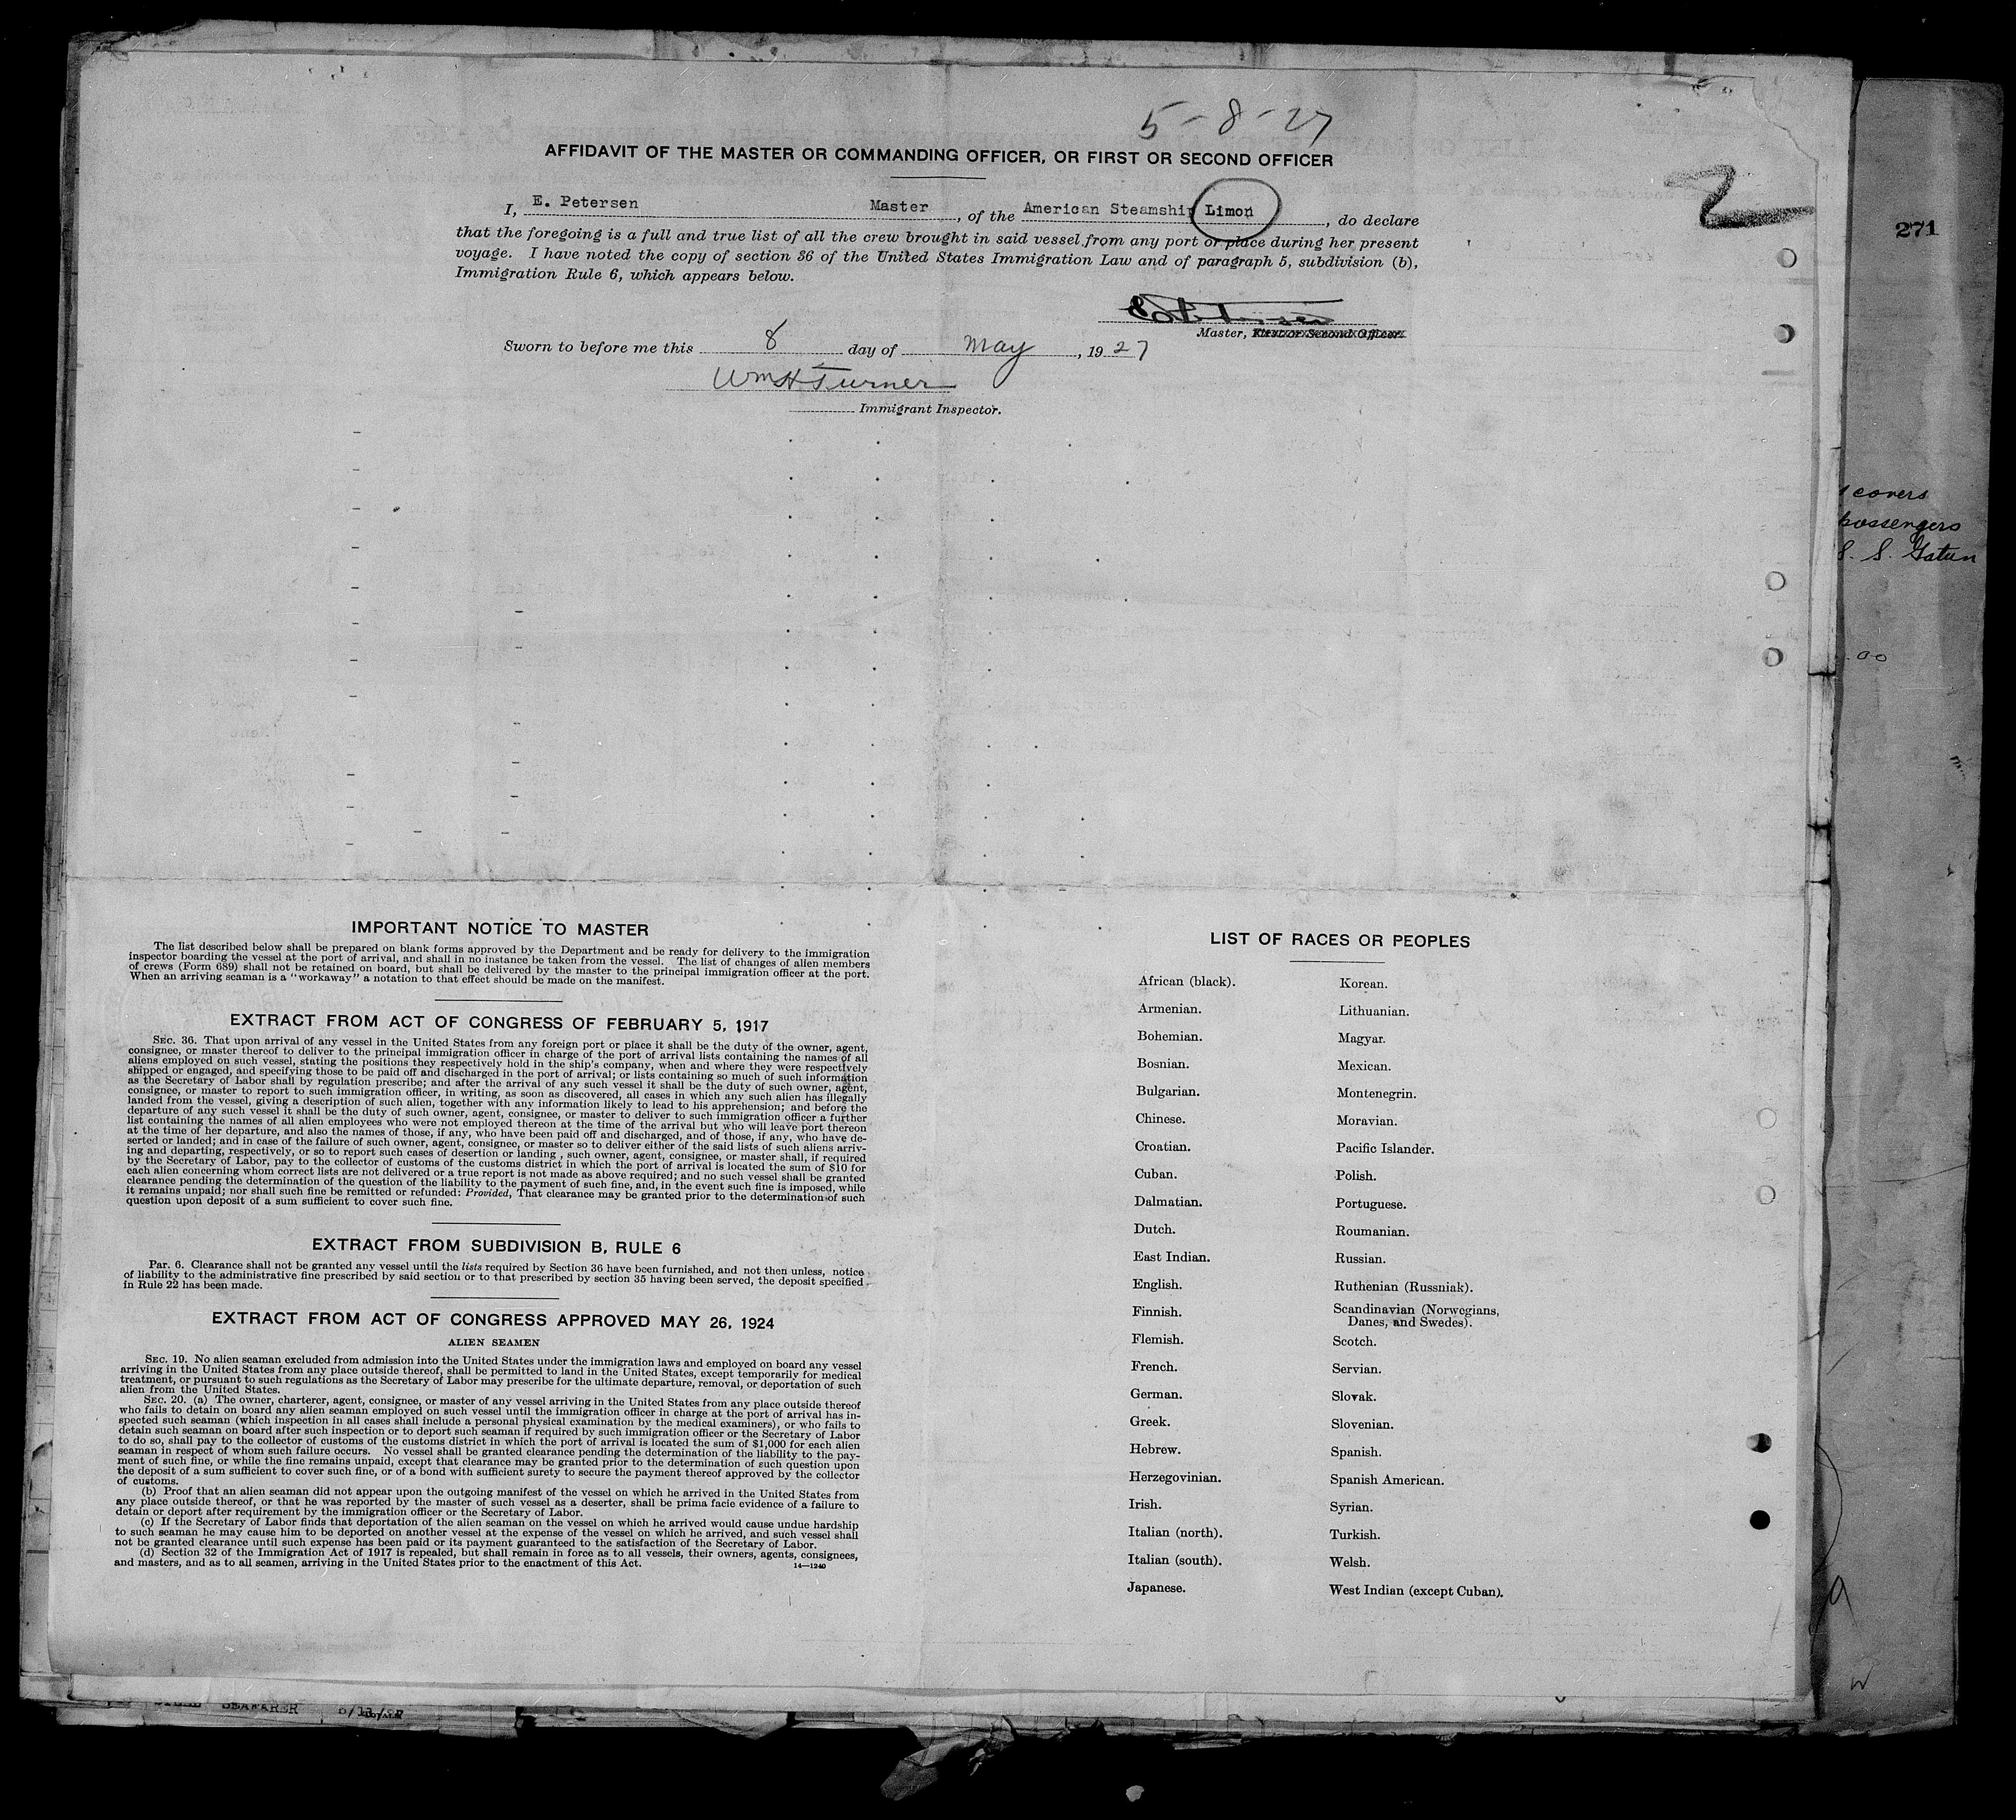 5-8-27
AFFIDAVIT OF THE MASTER OR COMMANDING OFFICER, OR FIRST OR SECOND OFFICER
2
I, E. Petersen Master, of the American Steamship Limon, do declare
that the foregoing is a full and true list of all the crew brought in said vessel from any port or place during her present
voyage. I have noted the copy of section 36 of the United States Immigration Law and of paragraph 5, subdivision (b),
Immigration Rule 6, which appears below.
Master, First or Second Officer.
Sworn to before me this 8 day of May, 1927
Wm H Turner
Immigrant Inspector.
271
covers
passengers
S. S. Gatun
.00
IMPORTANT NOTICE TO MASTER
The list described below shall be prepared on blank forms approved by the Department and be ready for delivery to the immigration
inspector boarding the vessel at the port of arrival, and shall in no instance be taken from the vessel. The list of changes of alien members
of crews (Form 689) shall not be retained on board, but shall be delivered by the master to the principal immigration officer at the port.
When an arriving seaman is a "workaway" a notation to that effect should be made on the manifest.
EXTRACT FROM ACT OF CONGRESS OF FEBRUARY 5, 1917
SEC. 36. That upon arrival of any vessel in the United States from any foreign port or place it shall be the duty of the owner, agent,
consignee, or master thereof to deliver to the principal immigration officer in charge of the port of arrival lists containing the names of all
aliens employed on such vessel, stating the positions they respectively hold in the ship's company, when and where they were respectively
shipped or engaged, and specifying those to be paid off and discharged in the port of arrival; or lists containing so much of such information
as the Secretary of Labor shall by regulation prescribe; and after the arrival of any such vessel it shall be the duty of such owner, agent,
consignee, or master to report to such immigration officer, in writing, as soon as discovered, all cases in which any such alien has illegally
landed from the vessel, giving a description of such alien, together with any information likely to lead to his apprehension; and before the
departure of any such vessel it shall be the duty of such owner, agent, consignee, or master to deliver to such immigration officer a further
list containing the names of all alien employees who were not employed thereon at the time of the arrival but who will leave port thereon
at the time of her departure, and also the names of those, if any, who have been paid off and discharged, and of those, if any, who have de-
serted or landed; and in case of the failure of such owner, agent, consignee, or master so to deliver either of the said lists of such aliens arriv-
ing and departing, respectively, or so to report such cases of desertion or landing , such owner, agent, consignee, or master shall, if required
by the Secretary of Labor, pay to the collector of customs of the customs district in which the port of arrival is located the sum of $10 for
each alien concerning whom correct lists are not delivered or a true report is not made as above required; and no such vessel shall be granted
clearance pending the determination of the question of the liability to the payment of such fine, and, in the event such fine is imposed, while
it remains unpaid; nor shall such fine be remitted or refunded: Provided, That clearance may be granted prior to the determination of such
question upon deposit of a sum sufficient to cover such fine.
EXTRACT FROM SUBDIVISION B, RULE 6
Par. 6. Clearance shall not be granted any vessel until the lists required by Section 36 have been furnished, and not then unless, notice
of liability to the administrative fine prescribed by said section or to that prescribed by section 35 having been served, the deposit specified
in Rule 22 has been made.
EXTRACT FROM ACT OF CONGRESS APPROVED MAY 26, 1924
ALIEN SEAMEN
SEC. 19. No alien seaman excluded from admission into the United States under the immigration laws and employed on board any vessel
arriving in the United States from any place outside thereof, shall be permitted to land in the United States, except temporarily for medical
treatment, or pursuant to such regulations as the Secretary of Labor may prescribe for the ultimate departure, removal, or deportation of such
alien from the United States.
SEC. 20. (a) The owner, charterer, agent, consignee, or master of any vessel arriving in the United States from any place outside thereof
who fails to detain on board any alien seaman employed on such vessel until the immigration officer in charge at the port of arrival has in-
spected such seaman (which inspection in all cases shall include a personal physical examination by the medical examiners), or who fails to
detain such seaman on board after such inspection or to deport such seaman if required by such immigration officer or the Secretary of Labor
to do so, shall pay to the collector of customs of the customs district in which the port of arrival is located the sum of $1,000 for each alien
seaman in respect of whom such failure occurs. No vessel shall be granted clearance pending the determination of the liability to the pay-
ment of such fine, or while the fine remains unpaid, except that clearance may be granted prior to the determination of such question upon
the deposit of a sum sufficient to cover such fine, or of a bond with sufficient surety to secure the payment thereof approved by the collector
of customs.
(b) Proof that an alien seaman did not appear upon the outgoing manifest of the vessel on which he arrived in the United States from
any place outside thereof, or that he was reported by the master of such vessel as a deserter, shall be prima facie evidence of a failure to
detain or deport after requirement by the immigration officer or the Secretary of Labor.
(c) If the Secretary of Labor finds that deportation of the alien seaman on the vessel on which he arrived would cause undue hardship
to such seaman he may cause him to be deported on another vessel at the expense of the vessel on which he arrived, and such vessel shall
not be granted clearance until such expense has been paid or its payment guaranteed to the satisfaction of the Secretary of Labor.
(d) Section 32 of the Immigration Act of 1917 is repealed, but shall remain in force as to all vessels, their owners, agents, consignees,
and masters, and as to all seamen, arriving in the United States prior to the enactment of this Act.
14—1240
LIST OF RACES OR PEOPLES
African (black).
Armenian.
Bohemian.
Bosnian.
Bulgarian.
Chinese.
Croatian.
Cuban.
Dalmatian.
Dutch.
East Indian.
English.
Finnish.
Flemish.
French.
German.
Greek.
Hebrew.
Herzegovinian.
Irish.
Italian (north).
Italian (south).
Japanese.
Korean.
Lithuanian.
Magyar.
Mexican.
Montenegrin.
Moravian.
Pacific Islander.
Polish.
Portuguese.
Roumanian.
Russian.
Ruthenian (Russniak).
Scandinavian (Norwegians,
Danes, and Swedes).
Scotch.
Servian.
Slovak.
Slovenian.
Spanish.
Spanish American.
Syrian.
Turkish.
Welsh.
West Indian (except Cuban).